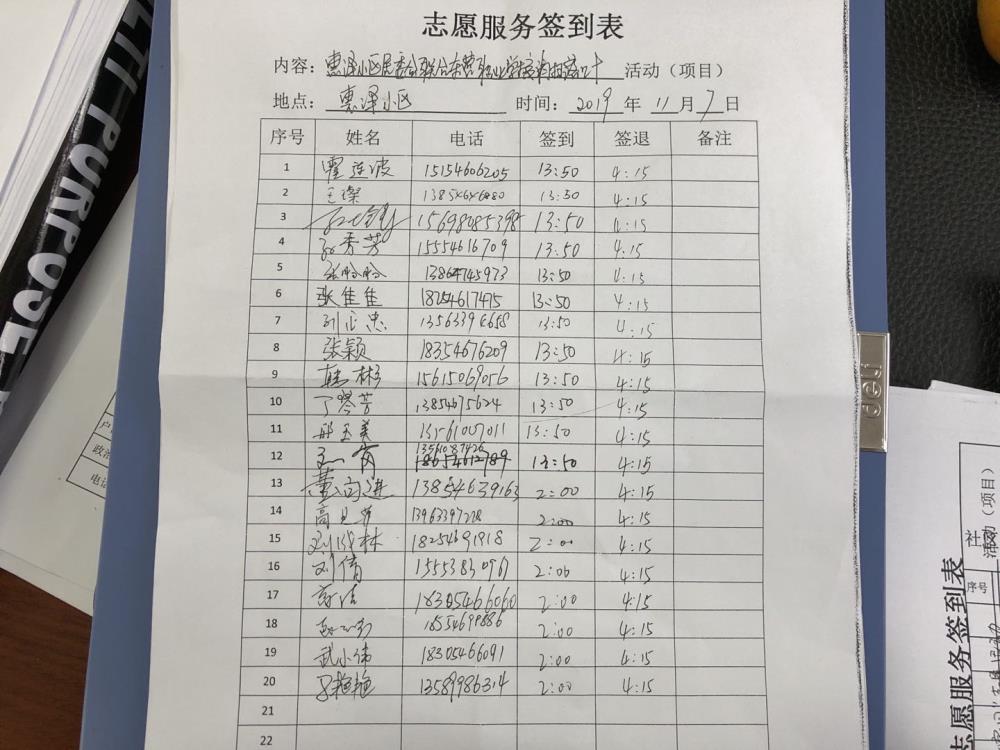 志愿服务签到表
内容：惠泽小区居委会联合东营职业学院 活动（项目）
地点：惠泽小区 时间：2019 年 11 月 7 日
序号 姓名 电话 签到 签退 备注
1 霍连波 15154606205 13:50 4:15
2 王璨 13:50 4:15
3 15698085398 13:50 4:15
4 秀芳 15554616709 13:50 4:15
5 张盼盼 13864745973 13:50 4:15
6 张佳佳 18254617475 13:50 4:15
7 刘正忠 13:50 4:15
8 张颖 18354676209 13:50 4:15
9 韩彬 15615069056 13:50 4:15
10 丁琴芳 13854675624 13:50 4:15
11 邱玉美 13561007011 13:50 4:15
12 18654612789 13:50 4:15
13 董向进 13854639163 2:00 4:15
14 13963397228 2:00 4:15
15 18254691918 2:00 4:15
16 刘倩 15553830967 2:00 4:15
17 18305466060 2:00 4:15
18 18554699886 2:00 4:15
19 武小伟 18305466091 2:00 4:15
20 艳艳 13589986314 2:00 4:15
21
22
LTI-PURPOSE
deli
户
政治
电话
志愿服务签到表
活动（项目）
序号